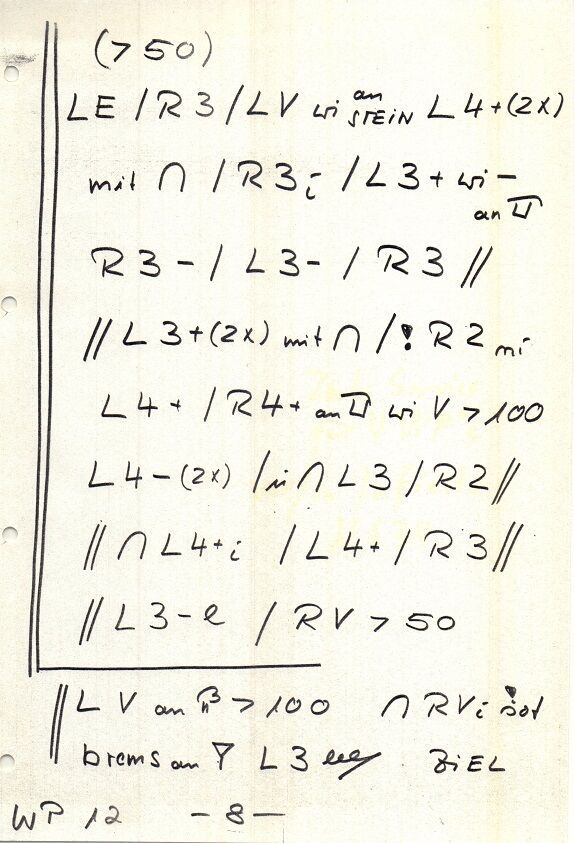 (>50)
LE /R3 /LV wi an STEIN L4+(2x)
mit ∩ /R3 i /L3+ wi – an
R3– / L3– / R3 //
// L3+(2x) mit ∩ /! R2 ni
L4+ /R4+ an wi V >100
L4–(2x) /in ∩ L3 /R2//
// ∩ L4+i /L4+ / R3//
// L3–e / RV > 50
// LV an > 100 ∩ RVi
brems an L3 ZiEL
WP 12 – 8 –